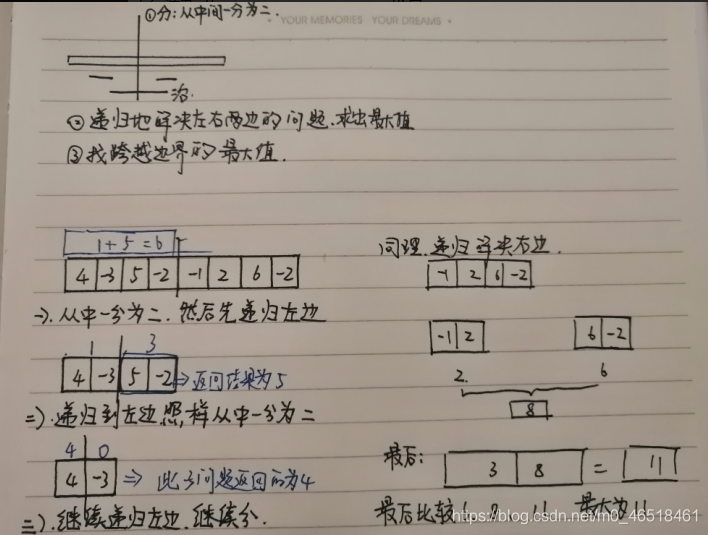 YOUR MEMORIES YOUR DREAMS
①分:从中间一分为二.
治.
②递归地解决左右两边的问题.求出最大值
③找跨越边界的最大值.
1+5=6
4 -3 5 -2 -1 2 6 -2
一).从中一分为二.然后先递归左边
1 3
4 -3 5 -2 ⇒返回结果为5
二).递归到左边照样从中一分为二
4 0
4 -3 ⇒ 此子问题返回的为4
三).继续递归左边.继续分.
同理.递归解决右边.
-1 2 6 -2
-1 2 6 -2
2. 6
8
最后:
3 8 = 11
最后比较 11 最大为11
https://blog.csdn.net/m0_46518461